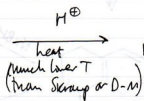 H⊕
heat
(much lower T
than Skraup or D-M)